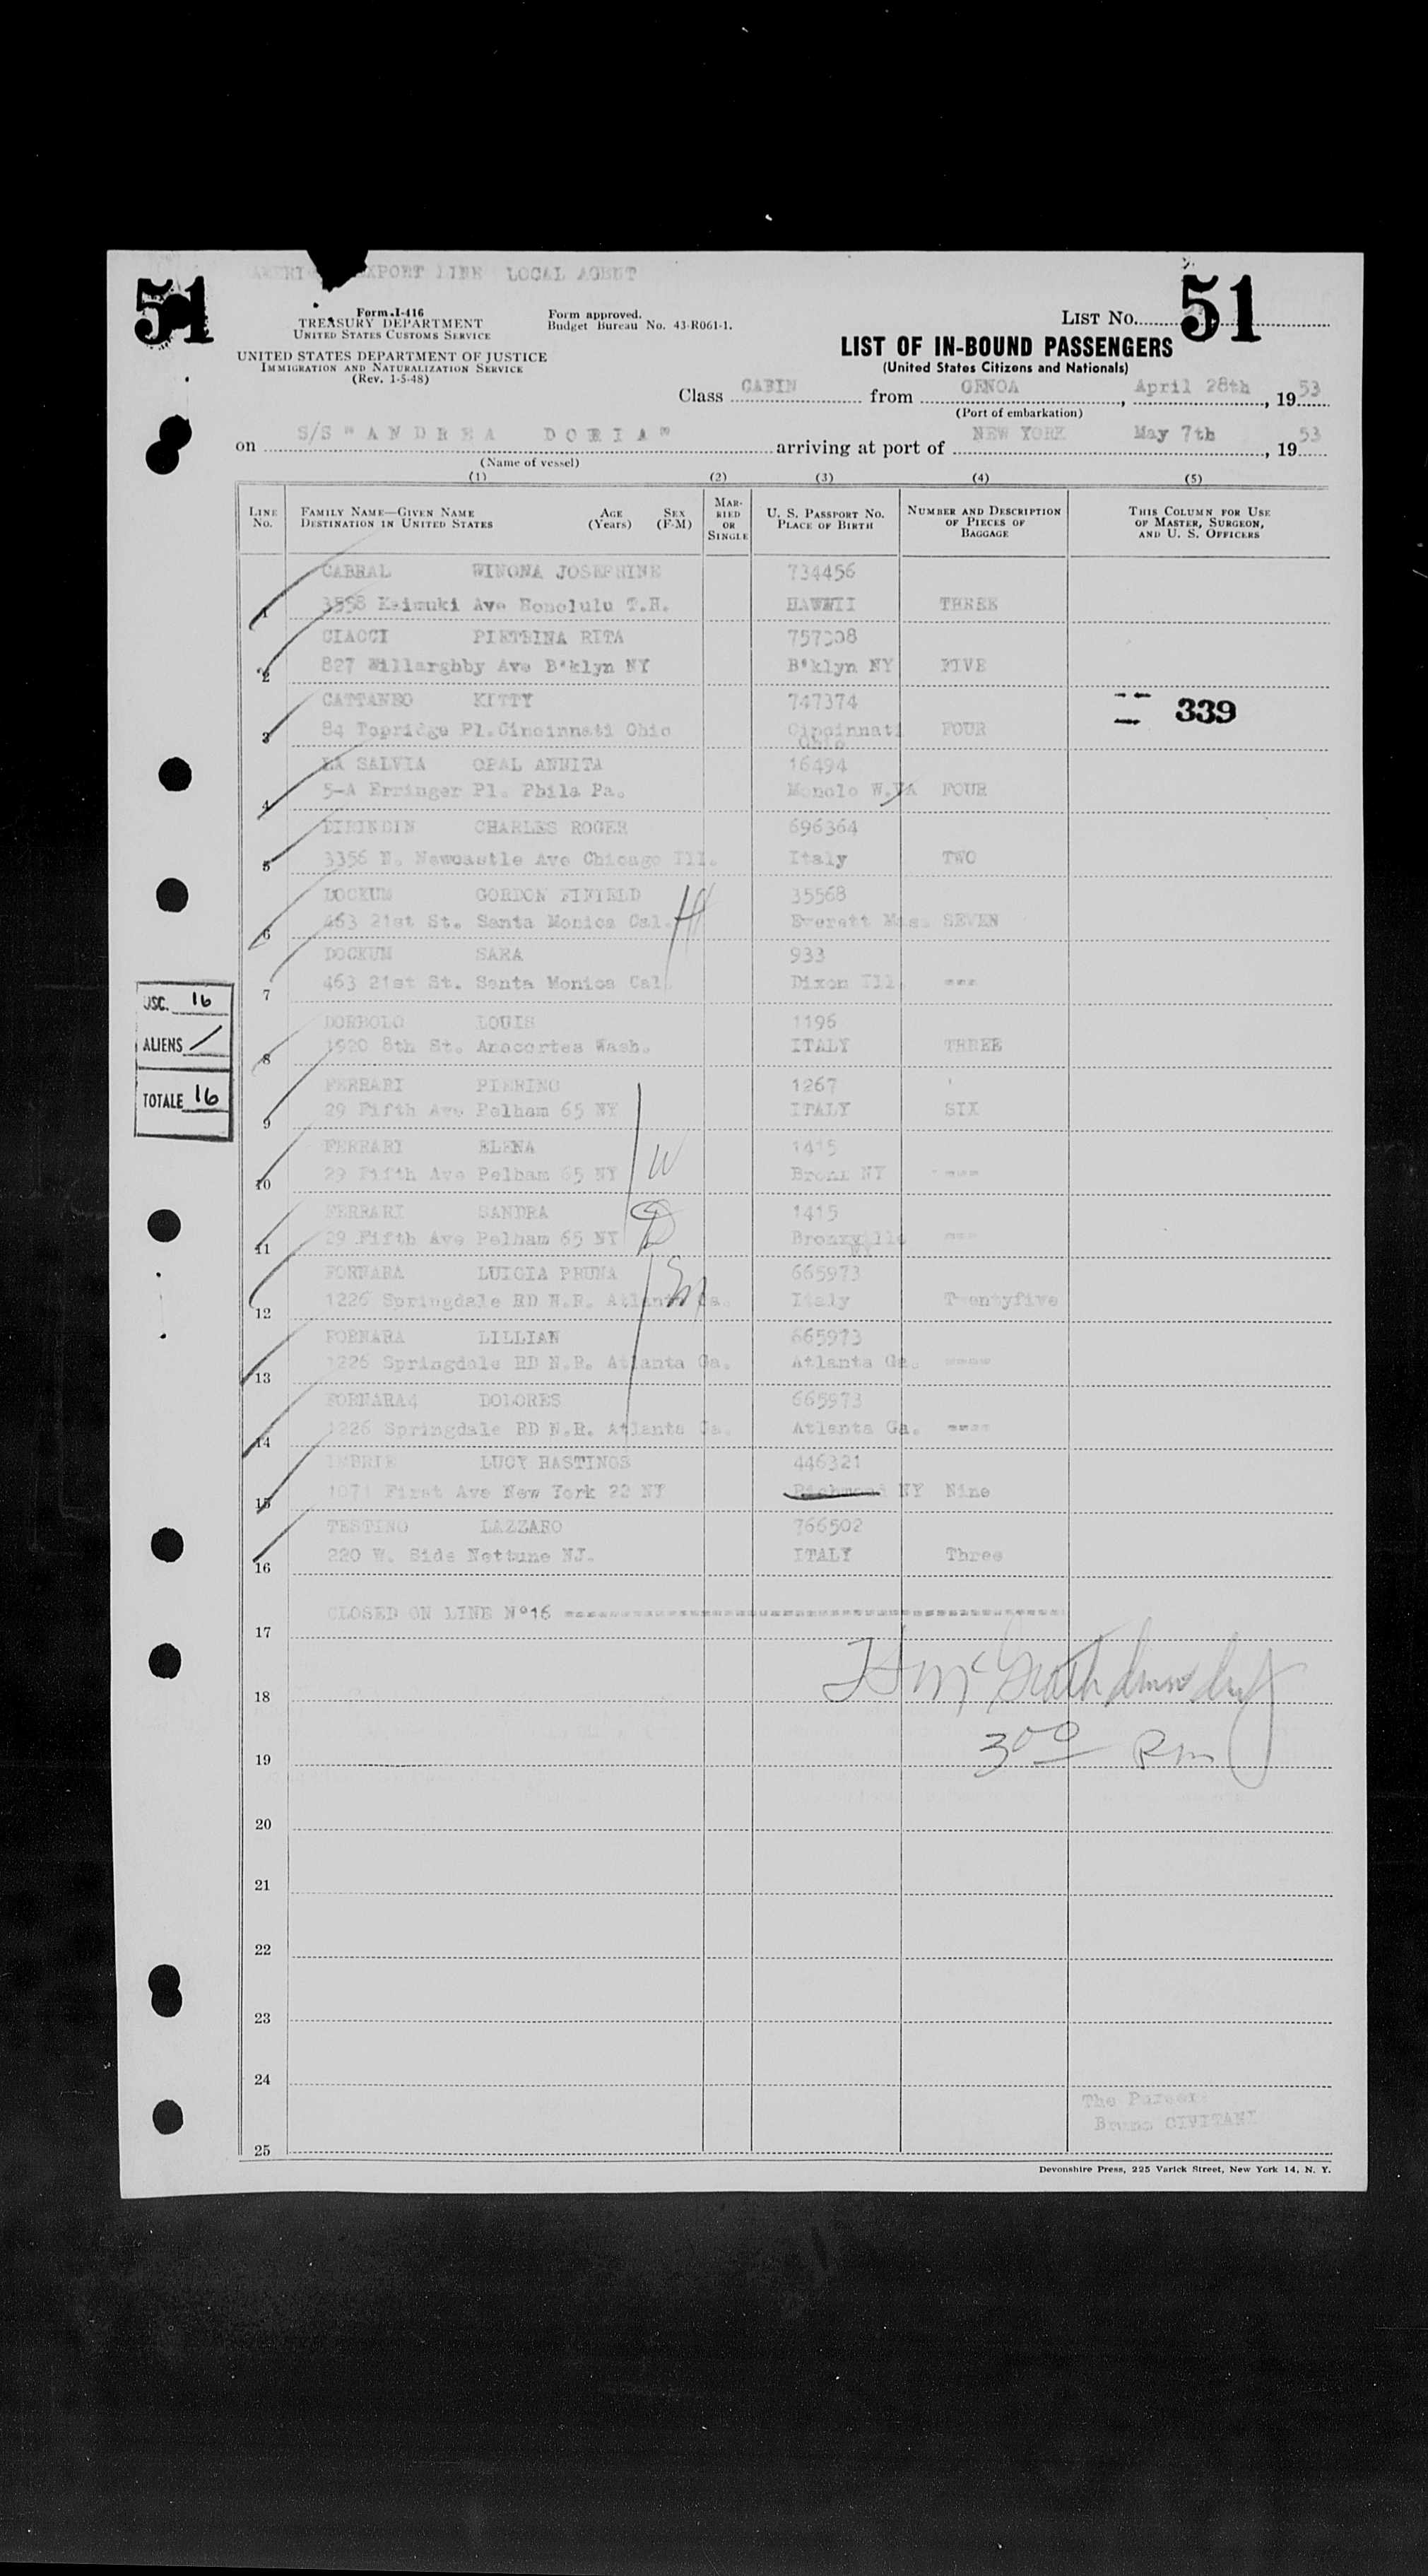 51
EXPORT LINE LOCAL AGENT
Form I-416
TREASURY DEPARTMENT
UNITED STATES CUSTOMS SERVICE
UNITED STATES DEPARTMENT OF JUSTICE
IMMIGRATION AND NATURALIZATION SERVICE
(Rev. 1-5-48)
Form approved.
Budget Bureau No. 43-R061-1.
LIST No. 51
LIST OF IN-BOUND PASSENGERS
(United States Citizens and Nationals)
Class CABIN from GENOA, April 28th, 1953
(Port of embarkation)
on S/S "ANDREA DORIA" arriving at port of NEW YORK May 7th, 1953
(Name of vessel)
(1) (2) (3) (4) (5)
LINE No. FAMILY NAME—GIVEN NAME DESTINATION IN UNITED STATES AGE (Years) SEX (F-M) MARRIED OR SINGLE U. S. PASSPORT No. PLACE OF BIRTH NUMBER AND DESCRIPTION OF PIECES OF BAGGAGE THIS COLUMN FOR USE OF MASTER, SURGEON, AND U. S. OFFICERS
CABRAL WINONA JOSEPHINE 734456
1 3558 Kaimuki Ave Honolulu T.H. HAWAII THREE
CIACCI PIETRINA RITA 757308
2 827 Willarghby Ave B'klyn NY B'klyn NY FIVE
CATTANEO KITTY 747374
339
3 84 Topridge Pl.Cincinnati Ohio Cincinnati Ohio FOUR
LA SALVIA OPAL ANNITA 16494
4 5-A Erringer Pl. Phila Pa. W.VA FOUR
CHARLES ROGER 696364
5 3356 N. Newcastle Ave Chicago Ill. Italy TWO
DOCKUM GORDON FIFIELD 35568
6 463 21st St. Santa Monica Cal. H Everett Mas. SEVEN
DOCKUM SARA 933
7 463 21st St. Santa Monica Cal. Dixon Ill. ---
DORBOLO LOUIS 1196
8 1920 8th St. Anacortes Wash. ITALY THREE
FERRARI PIERINO 1267
9 29 Fifth Ave Pelham 65 NY ITALY SIX
FERRARI ELENA 1415
10 29 Fifth Ave Pelham 65 NY W Bronx NY ---
FERRARI SANDRA 1415
11 29 Fifth Ave Pelham 65 NY D Bronxville NY ---
FORNARA LUIGIA PRUNA 665973
12 1226 Springdale RD N.E. Atlanta Ga. M Italy Twentyfive
FORNARA LILLIAN 665973
13 1226 Springdale RD N.E. Atlanta Ga. Atlanta Ga. ----
FORNARA4 DOLORES 665973
14 1226 Springdale RD N.E. Atlanta Ga. Atlanta Ga. ----
IMBRIE LUCY HASTINGS 446321
15 1071 First Ave New York 22 NY Richmond NY Nine
TESTINO LAZZARO 766502
16 220 W. Side Nettune NJ. ITALY Three
USC. 16
ALIENS /
TOTALE 16
CLOSED ON LINE N°16
17
18
3 00 Pm
19
20
21
22
23
24
The Purser
Bruno CIVITANI
25
Devonshire Press, 225 Varick Street, New York 14, N. Y.